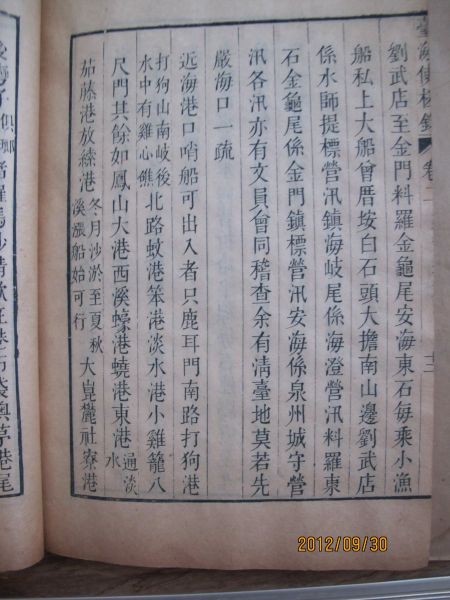 臺海使槎錄
卷二
十三
劉武店至金門料羅金龜尾安海東石每乘小漁
船私上大船曾厝垵白石頭大擔南山邊劉武店
係水師提標營汛鎮海岐尾係海澄營汛料羅東
石金龜尾係金門鎮標營汛安海係泉州城守營
汛各汛亦有文員會同稽查余有清臺地莫若先
嚴海口一疏
近海港口哨船可出入者只鹿耳門南路打狗港
打狗山南岐後
水中有雞心礁
北路蚊港笨港淡水港小雞籠八
尺門其餘如鳳山大港西溪蠔港蟯港東港
通淡
水
茄藤港放䌇港
冬月沙淤至夏秋
溪漲船始可行
大崑麓社寮港
2012/09/30